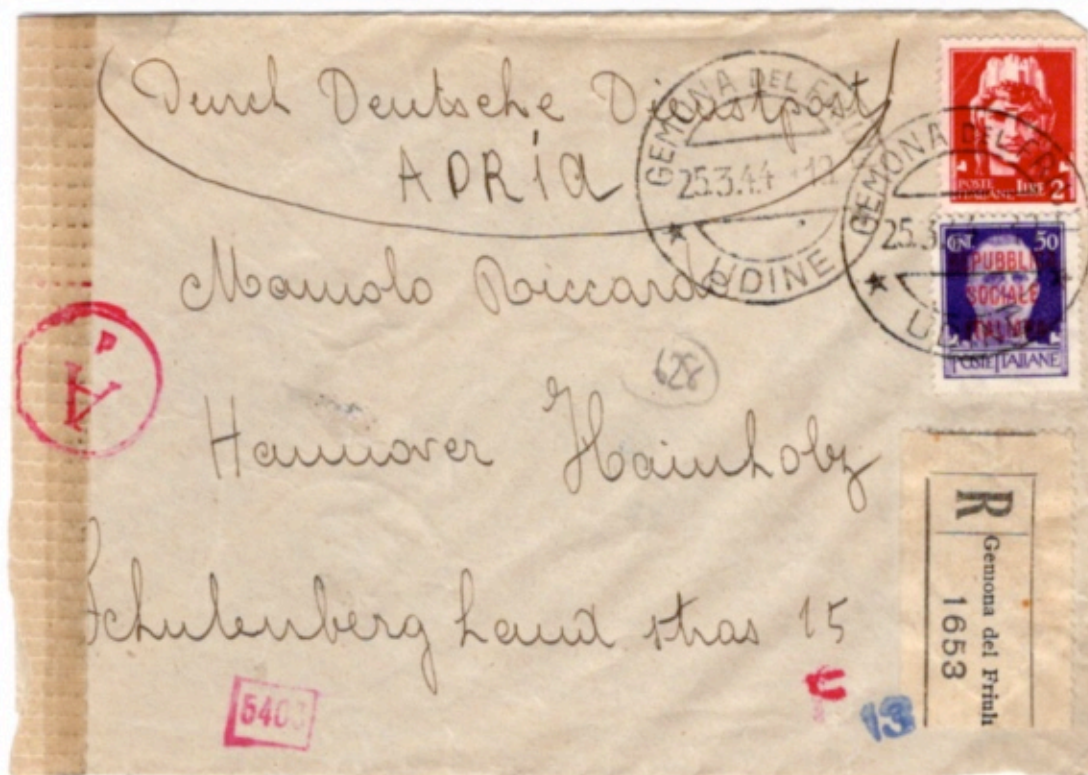 Durch Deutsche Dienstpost
ADRIA
GEMONA DEL FRIULI
25.3.44
UDINE
GEMONA DEL FRI
25.3
POSTE ITALIANE LIRE 2
CENT. 50
REPUBBLICA
SOCIALE
ITALIANA
POSTE ITALIANE
Riccardo
628
Hannover Hainholz
Schulenberg Land stras 15
R
Gemona del Friuli
1653
5403
13